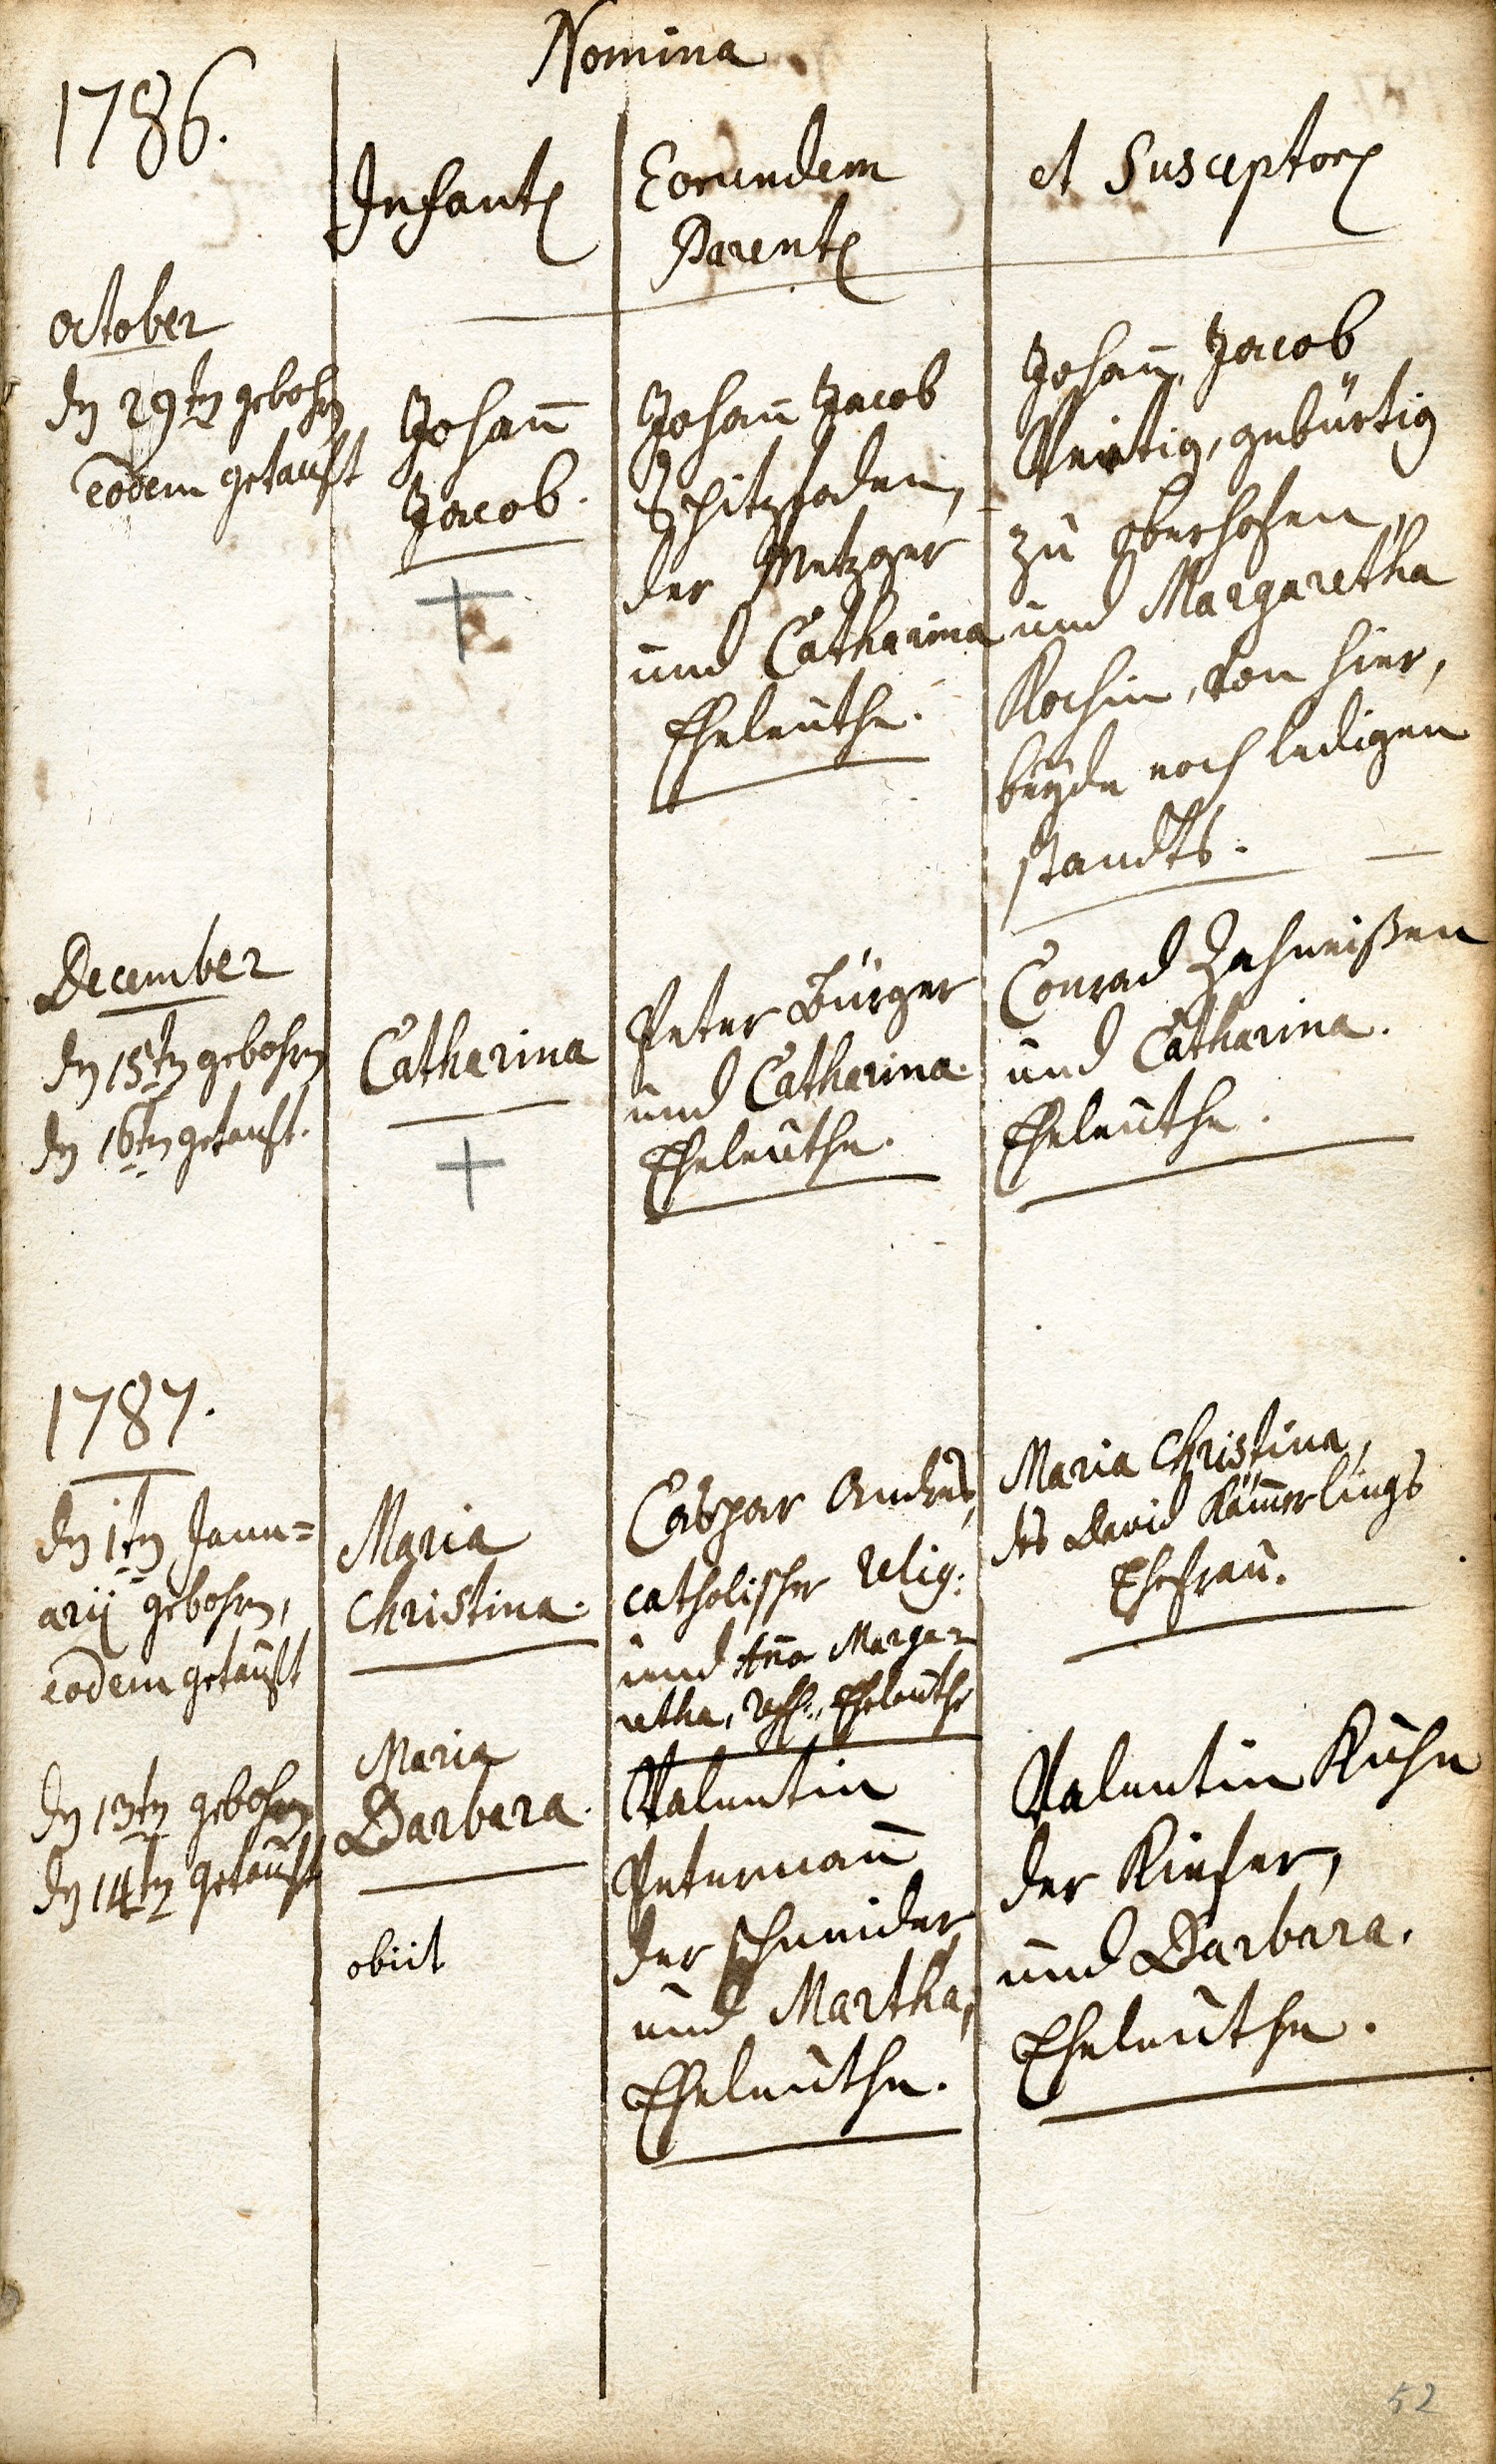 Nomina
1786.
Infant
Eorundem
Parent
et Susceptor
october
den 29ten gebohren
eodem getauft
Johann
Jacob.
Johann Jacob
Spitzfaden,
der Metzger
und Catharina
Eheleuthe.
Johann Jacob
gebürtig
zu oberhofen,
und Margaretha
Kochin, von hier,
beyde noch ledigen
standts.
December
den 15ten gebohren
den 16ten getauft.
Catharina
Peter Bürger
und Catharina.
Eheleuthe.
Conrad Zahneißen
und Catharina.
Eheleuthe.
1787.
den 1ten Janu=
arij gebohren,
eodem getauft
Maria
Christina.
Caspar Andres,
catholischer relig:
und Aña Marga=
retha, reff., Eheleuthe
Maria Christina,
des David Kämerlings
Ehefrau.
den 13ten gebohren
den 14ten getauft
Maria
Barbara.
obiit
Valentin
Petermañ
der schneider
und Martha,
Eheleuthe.
Valentin Kuhn
der Kiefer,
und Barbara.
Eheleuthe.
52